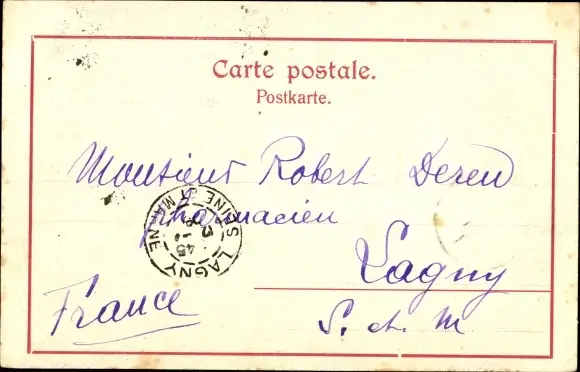 Carte postale.
Postkarte.
Monsieur Robert Deren
pharmacien
LAGNY
Lagny
S. et. M
France